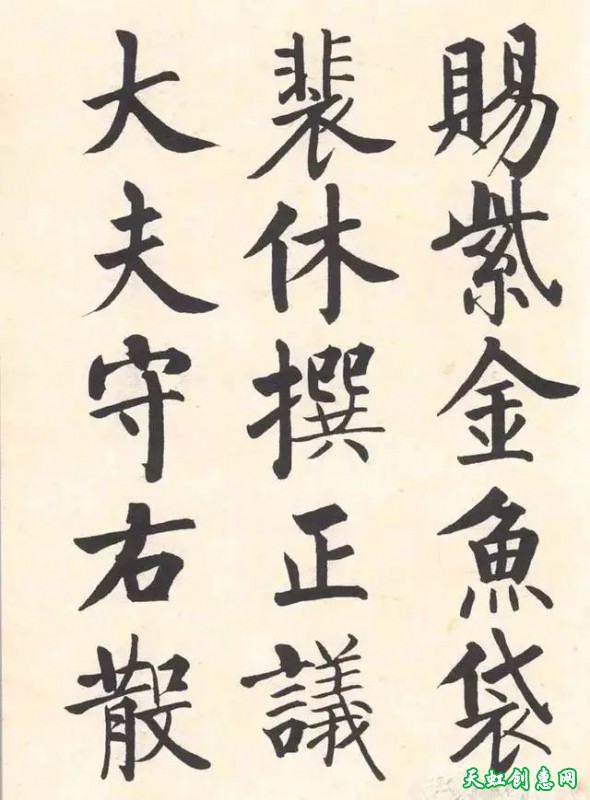 賜紫金魚袋
裴休撰正議
大夫守右散
天虹创惠网